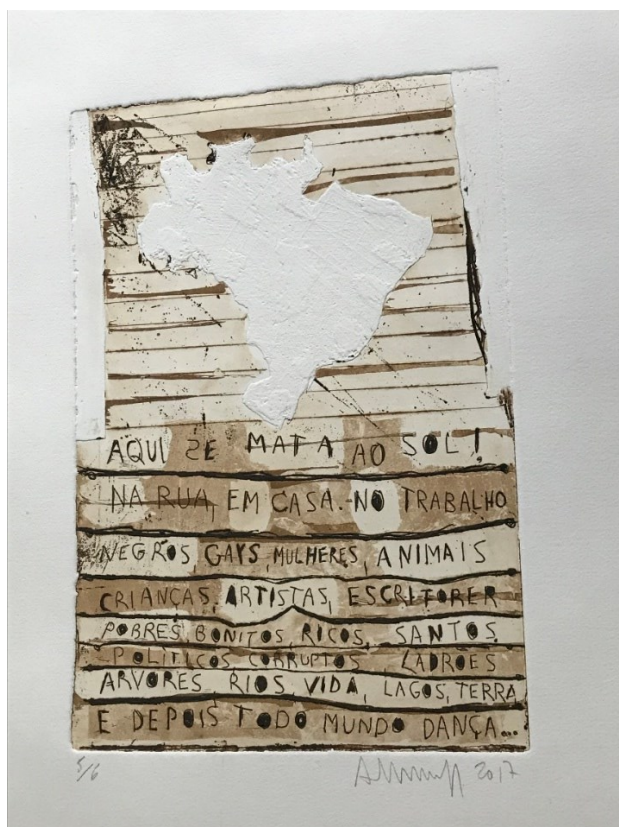 AQUI SE MATA AO SOL!
NA RUA, EM CASA.-NO TRABALHO
NEGROS, GAYS, MULHERES, ANIMAIS
CRIANÇAS, ARTISTAS, ESCRITORER
POBRES, BONITOS, RICOS, SANTOS,
POLITICOS CORRUPTOS LADROES
ARVORES, RIOS, VIDA, LAGOS, TERRA
E DEPOIS TODO MUNDO DANÇA...
5/6 2017